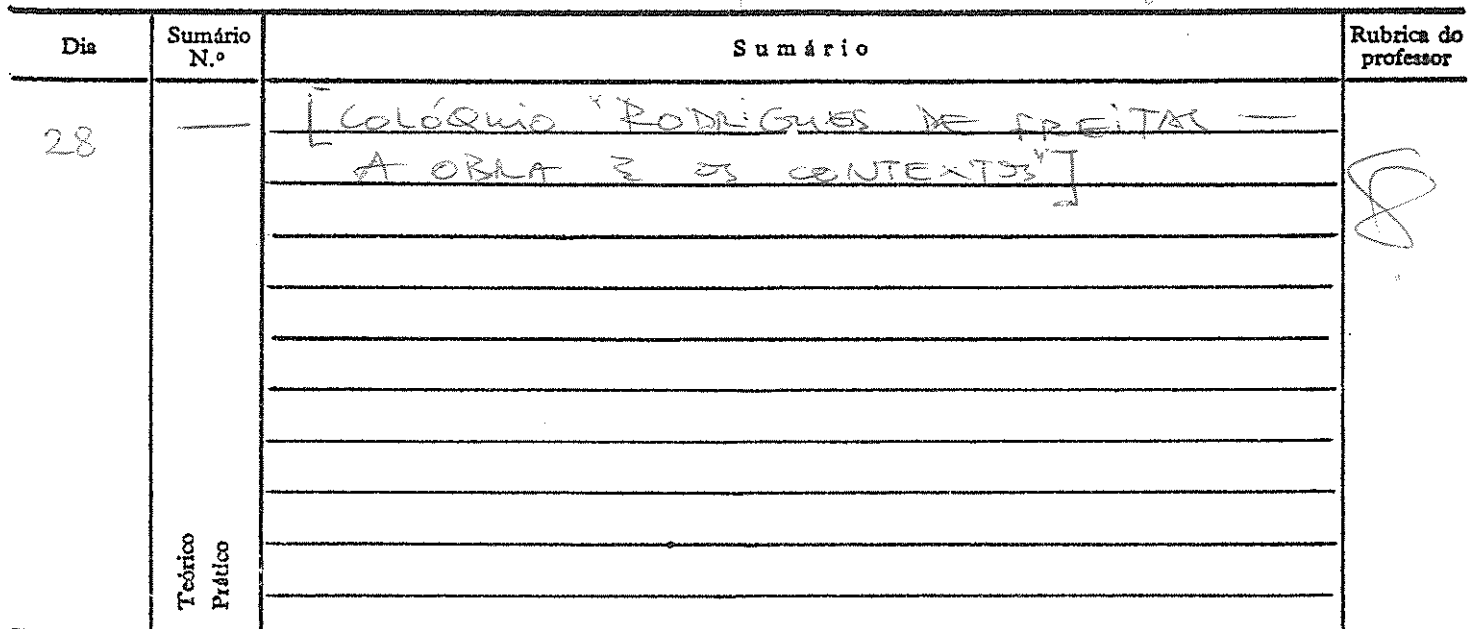 Dia
Sumário N.º
Sumário
Rubrica do professor
28
—
[COLÓQUIO "RODRIGUES DE FREITAS —
A OBRA E OS CONTEXTOS"]
Teórico
Prático